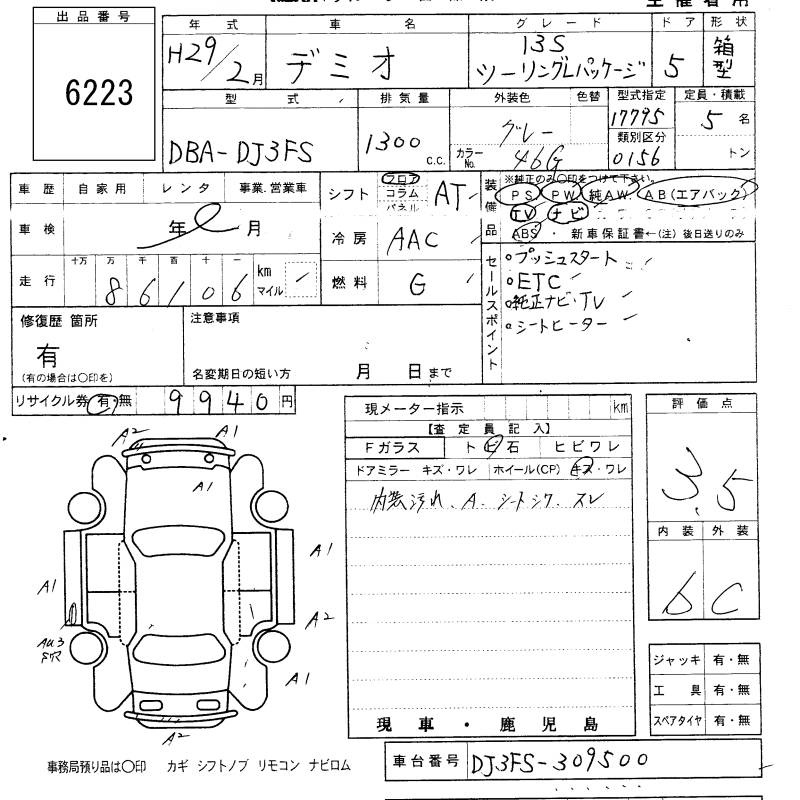 出品番号
6223
年式 車名 グレード ドア 形状
H29/2月 デミオ 13S ツーリングLパッケージ 5 箱型
型式 排気量 外装色 色替 型式指定 定員・積載
DBA-DJ3FS 1300 C.C. グレー カラーNo. 46G 17795 類別区分 0156 5名 トン
車歴 自家用 レンタ 事業.営業車
車検 年 月
走行 十万 万 千 百 十 一 km マイル
8 6 1 0 6
シフト フロア コラム パネル AT
冷房 AAC
燃料 G
装備品 ※純正のみ○印をつけて下さい。
PS PW 純AW. AB(エアバック)
TV ナビ
ABS ・ 新車保証書←(注) 後日送りのみ
セールスポイント
○プッシュスタート
○ETC
○純正ナビ・TV
○シートヒーター
修復歴 箇所
有
(有の場合は○印を)
注意事項
名変期日の短い方 月 日まで
リサイクル券 有 無 9940円
現メーター指示 km
【査定員記入】
Fガラス トビ石 ヒビワレ
ドアミラー キズ・ワレ ホイール(CP) キズ・ワレ
内装汚れ、A、シートシワ、スレ
現車・鹿児島
評価点
3.5
内装 外装
b C
ジャッキ 有・無
工具 有・無
スペアタイヤ 有・無
A2 A1
A1
A1
A1
A2
AU3
A1
A2
事務局預り品は○印 カギ シフトノブ リモコン ナビロム
車台番号 DJ3FS-309500